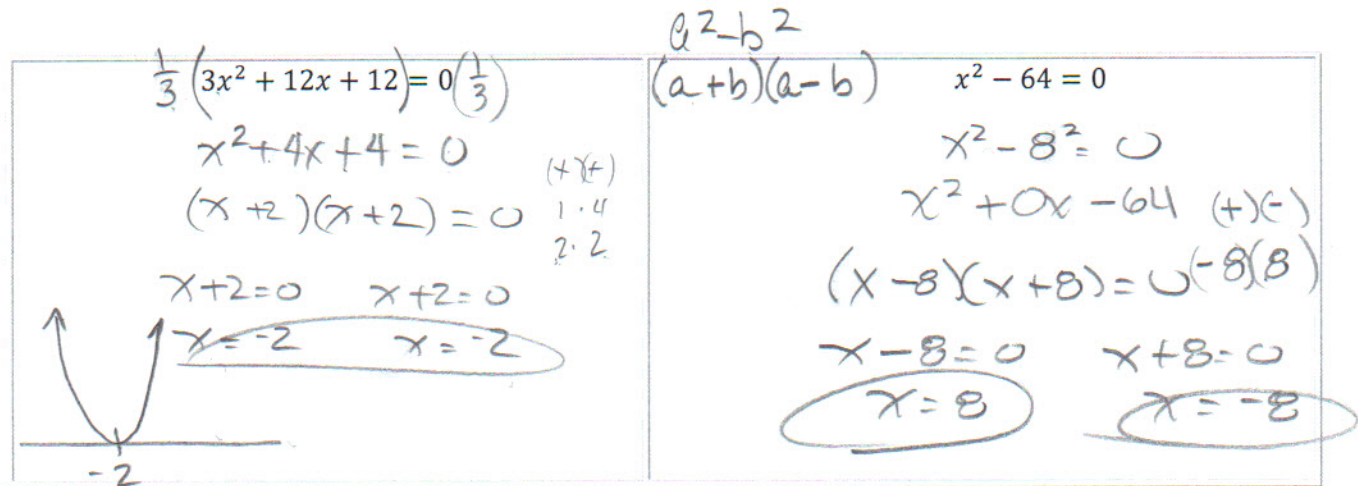 1/3 (3x² + 12x + 12) = 0 (1/3)
x² + 4x + 4 = 0
(x + 2)(x + 2) = 0
(+)(+)
1 · 4
2 · 2
x + 2 = 0 x + 2 = 0
x = -2 x = -2
-2
a² - b²
(a + b)(a - b) x² - 64 = 0
x² - 8² = 0
x² + 0x - 64 (+)(-)
(x - 8)(x + 8) = 0 (-8)(8)
x - 8 = 0 x + 8 = 0
x = 8 x = -8